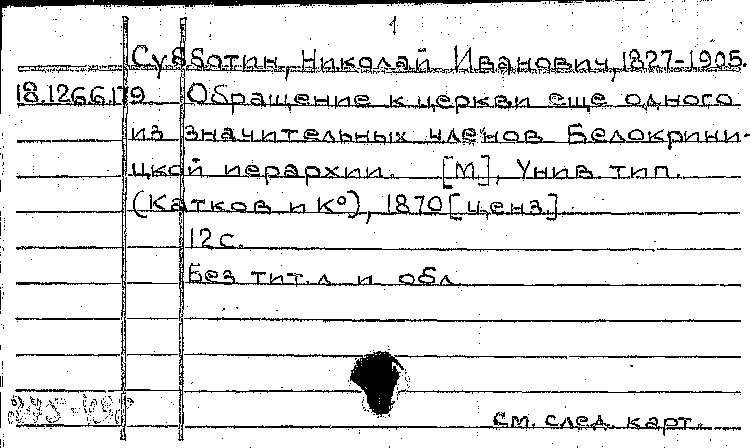 1
Субботин, Николай Иванович, 1827-1905.
18.126.6.179 Обращение к церкви еще одного
из значительных членов Белокрини-
цкой иерархии. [М], Унив. тип.
(Катков и К°), 1870 [ценз.]
12 с.
Без тит. л и обл
см. след. карт.